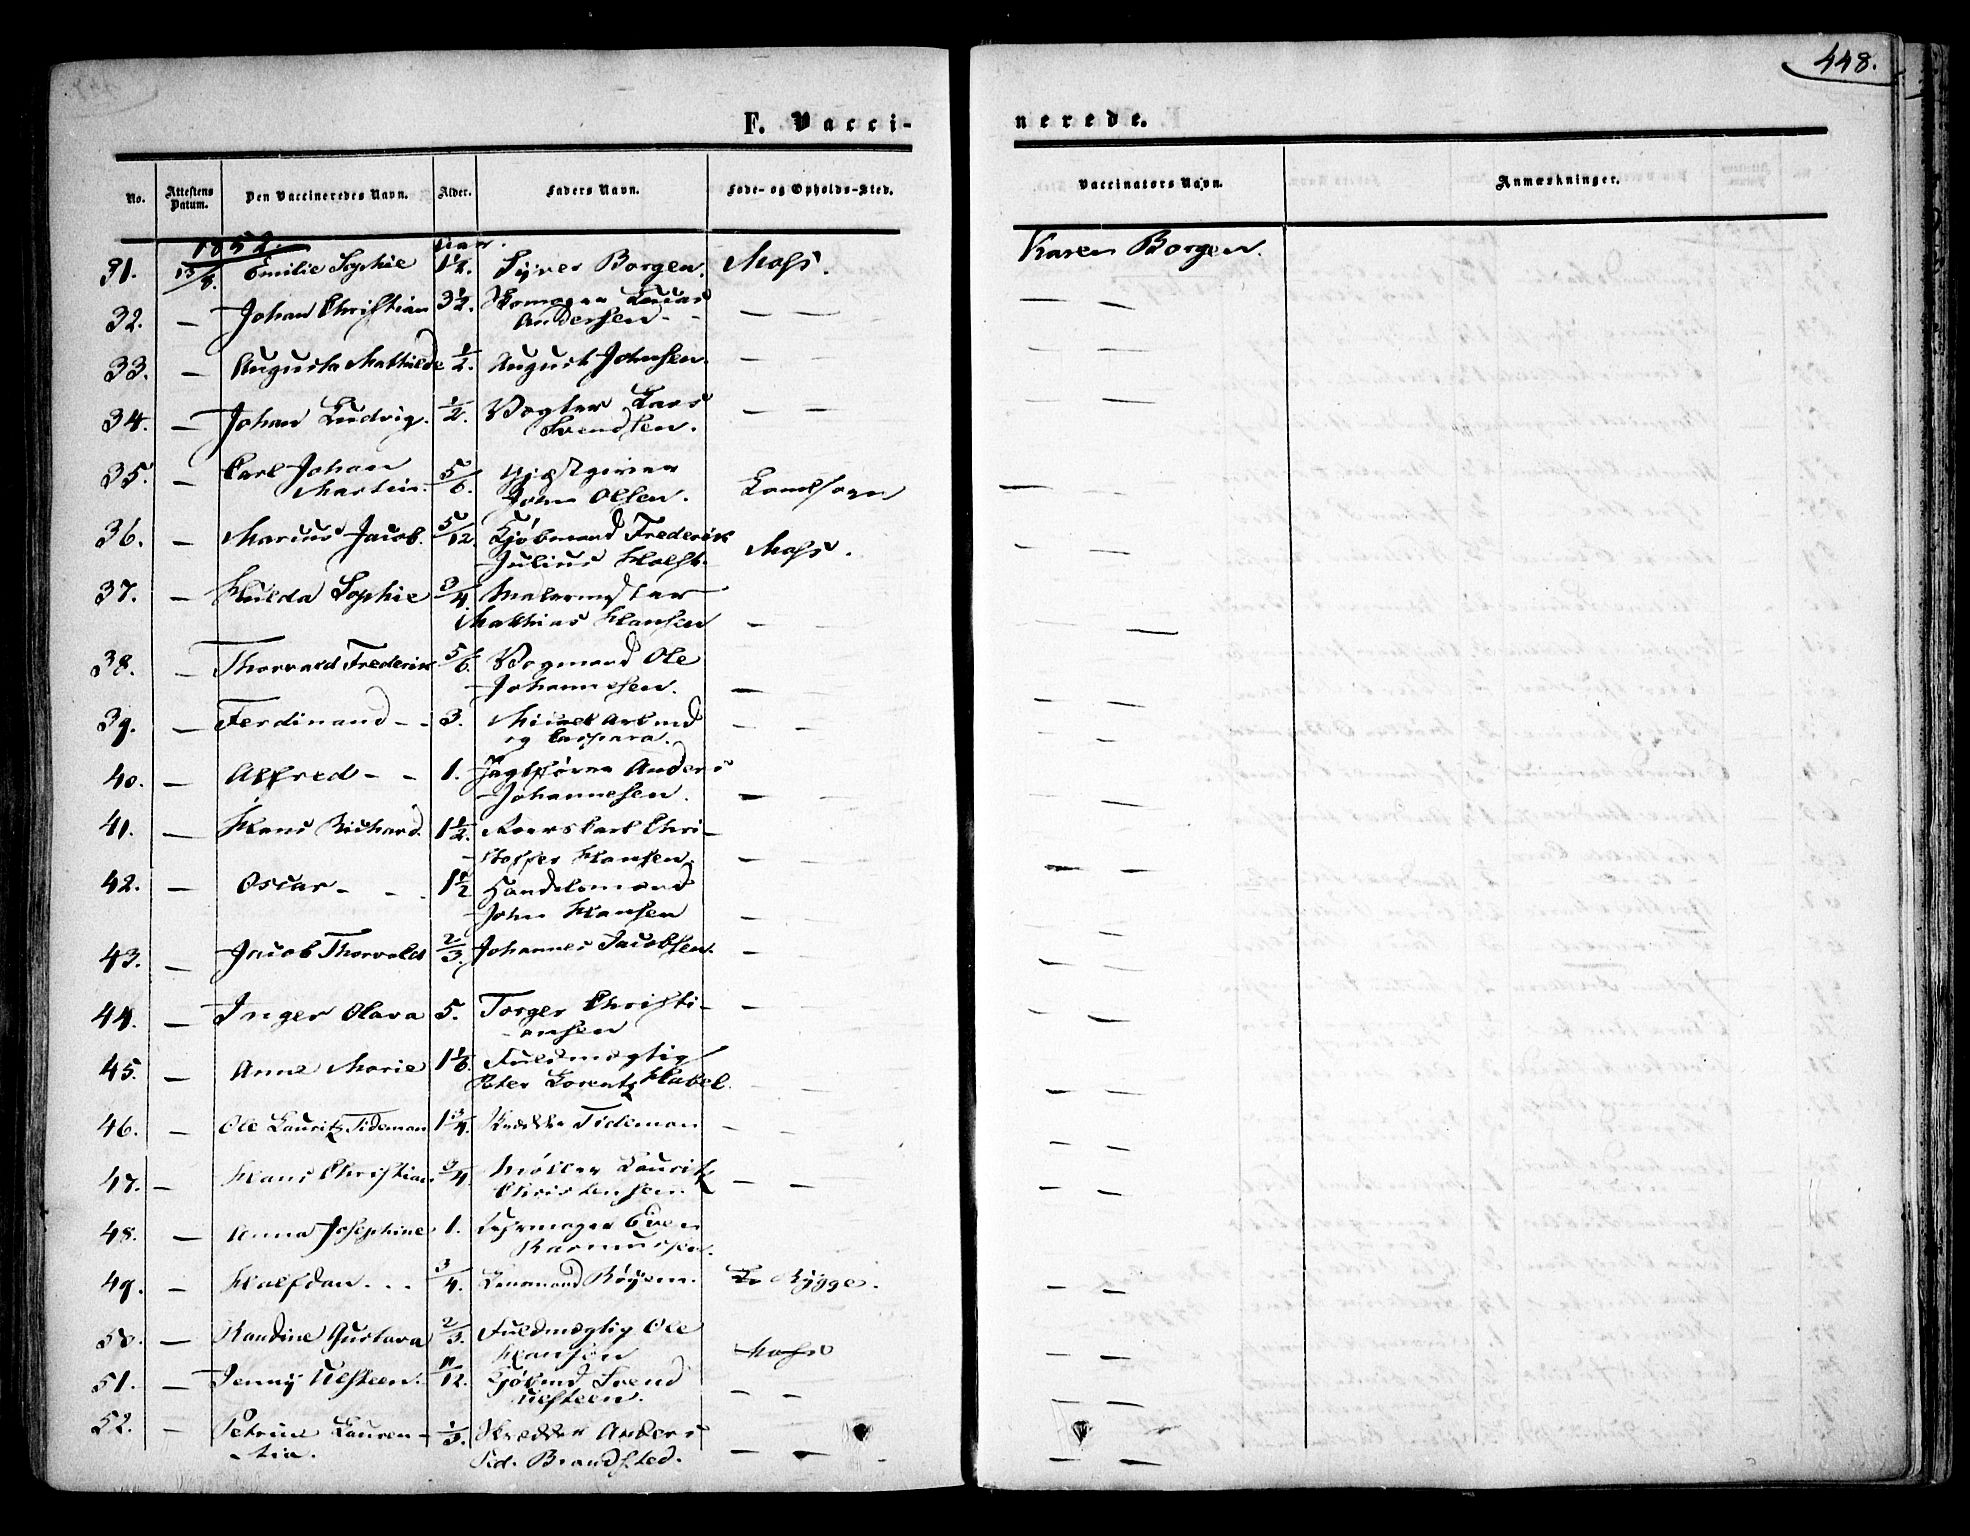 448.
F. Vacci-
nerede.
No.
Attestens Datum.
Den Vaccineredes Navn.
Alder.
Faders Navn.
Føde- og Opholds-Sted.
Vaccinators Navn.
Anmærkninger.
1852.
31. 15/8. Emilie Sophie 1 1/2. Syver Borgen. Moss. Karen Borgen.
32. — Johan Christian 3 1/2. Lucas
Andersen - - — — — —
33. — Augusta Mathilde 1/2. August Johnsen. — — — —
34. — Johan Ludvig. 1/2. Vogter Lars
Svendsen. — — — —
35. — Carl Johan 5/6. Gjæstgiver
Martin. John Olsen. — —
36. — Marius Jacob. 5/12. Kjøbmand Frederik
Julius Holst. Moss. — —
37. — Hulda Sophie 3/4. Malermester
Mathias Hansen — — — —
38. — Thorvald Frederik 5/6. Vognmand Ole
Johannesen. — — — —
39. — Ferdinand - - 3.
og Caspara. — — — —
40. — Alfred - - 1. Anders
Johannesen. — — — —
41. — Hans Richard. 1 1/2. Chri-
stoffer Hansen. — — — —
42. — Oscar - - 1 1/2 Handelsmand
John Hansen — — — —
43. — Jacob Thorvald 2/3. Johannes Jacobsen. — — — —
44. — Inger Olava 5. Torger Christi-
ansen — — — —
45. — Anne Marie 1 1/6. Fuldmægtig
Peter Lorentz Habel. — — — —
46. — Ole Lauritz Tideman 1 3/4. Tideman — — — —
47. — Hans Christian 3/4. Møller Lauritz
Christensen. — — — —
48. — Anna Josephine 1. Even
Rasmussen.
49. — Halfdan - - - 3/4. Rygge. — —
50. — Randine Gustava 2/3. Fuldmægtig Ole
Hansen Moss — —
51. — Jenny Ulsteen. 11/12. Kjøbmd Svend
Ulsteen. — — — —
52. — Petrine Lauren- 1/3. Anders
tia. Brandsted. — — — —